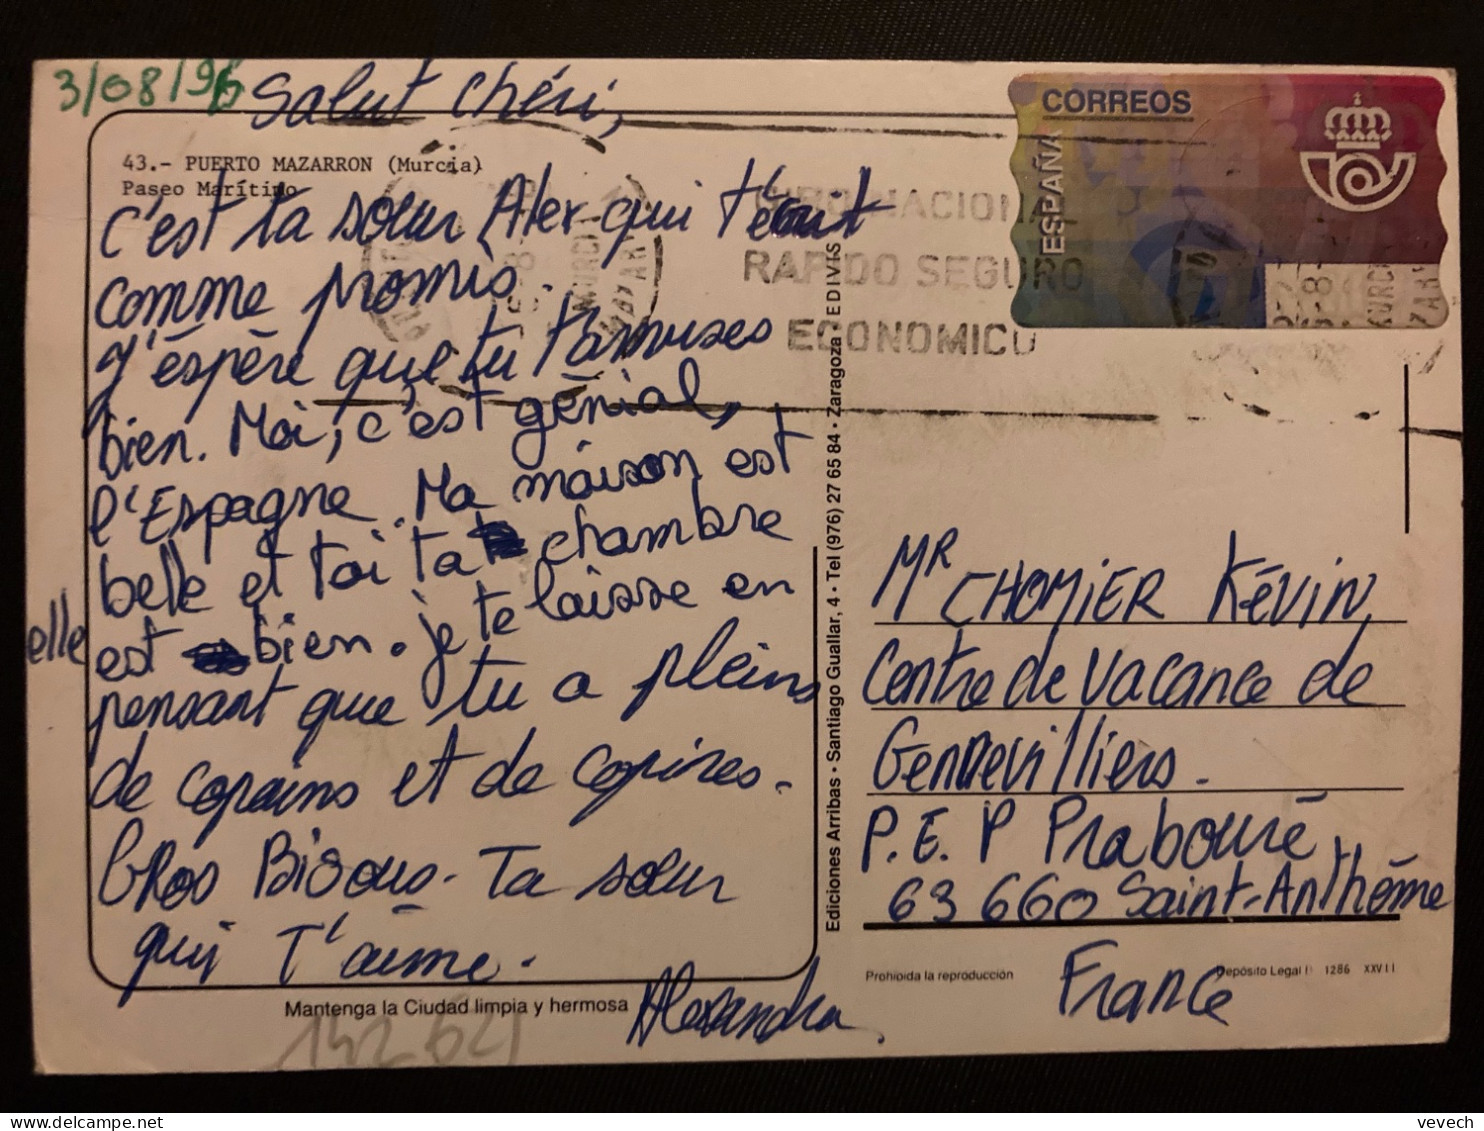 3/08/96
Salut chéri,
43.- PUERTO MAZARRON (Murcia)
Paseo Marítimo
c'est ta soeur Alex qui t'écrit
comme promis.
J'éspère que tu t'amuses
bien. Moi, c'est génial,
l'Espagne. Ma maison est
belle et toi ta chambre
elle est bien. je te laisse en
pensant que tu a pleins
de copains et de copines.
Gros Bisous. Ta soeur
qui T'aime.
Alexandra
Mantenga la Ciudad limpia y hermosa
14264
Ediciones Arribas · Santiago Guallar, 4 · Tel (976) 27 65 84 · Zaragoza EDIVIS
CORREOS
ESPAÑA
GIRO NACIONAL
RAPIDO SEGURO
ECONOMICO
Mr CHOMIER Kévin,
Centre de vacance de
Gennevilliers.
P.E.P Prabouré,
63 660 Saint-Anthème
France
Prohibida la reproducción
Depósito Legal 1286 XXVII
vevech